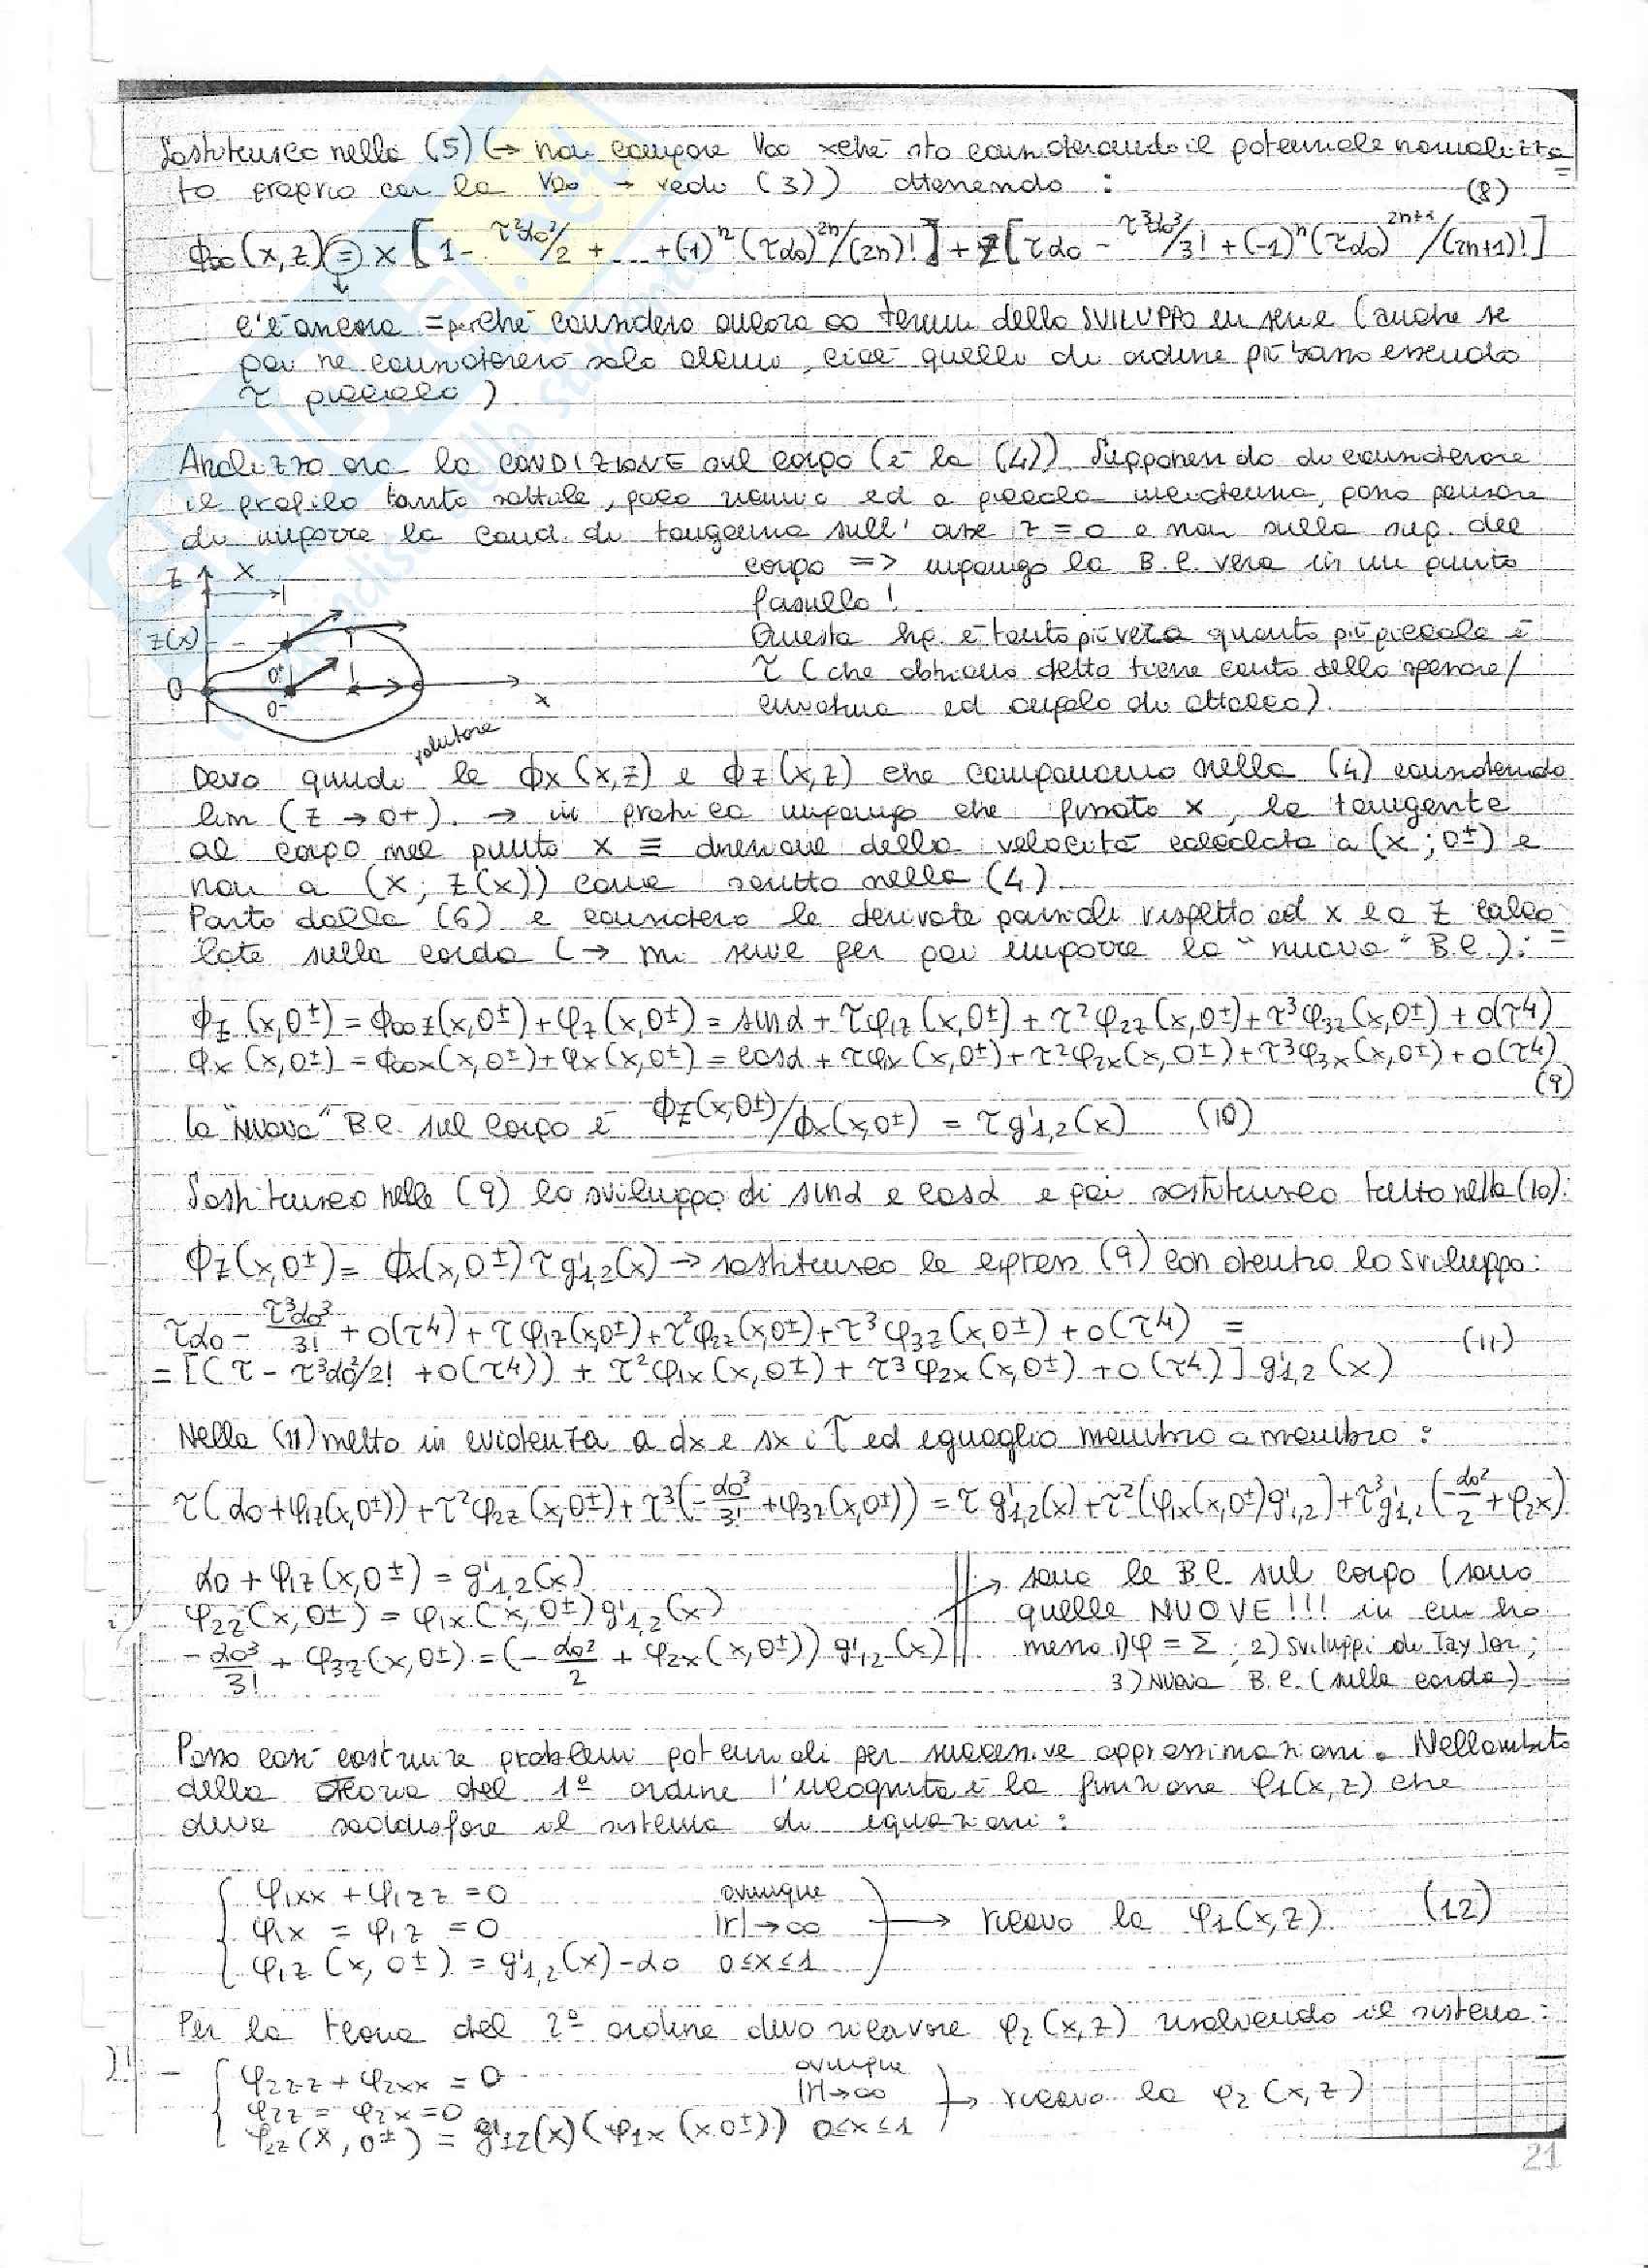 Sostituisco nella (5) (→ non compare V∞ xchè sto considerando il potenziale normalizza=
to proprio con la V∞ → vedo (3)) ottenendo : (8)
ϕ∞(x,z) = x [1 - τ²α0²/2 + ... + (-1)ⁿ (τα0)²ⁿ/(2n)!] + z [τα0 - τ³α0³/3! + (-1)ⁿ (τα0)²ⁿ⁺¹/(2n+1)!]
C'è ancora = perchè considero ancora ∞ termini dello SVILUPPO in serie (anche se
poi ne considererò solo alcuni, cioè quelli di ordine più basso essendo
τ piccolo)
Analizzo ora la CONDIZIONE sul corpo (è la (4)). Supponendo di considerare
il profilo tanto sottile, poco curvo ed a piccola incidenza, posso pensare
di imporre la cond. di tangenza sull'asse z = 0 e non sulla sup. del
corpo => impongo la B.C. vera in un punto
fasullo!
Questa hp. è tanto più vera quanto più piccolo è
τ (che abbiamo detto tiene conto dello spessore/
curvatura ed angolo di attacco).
z x
z(x)
0⁺
0
0⁻
x
valutare
Devo quindi le ϕx(x,z) e ϕz(x,z) che compaiono nella (4) considerando
lim (z → 0+). → in pratica impongo che fissato x, la tangente
al corpo nel punto x ≡ direzione della velocità calcolata a (x ; 0±) e
non a (x; z(x)) come scritto nella (4).
Parto dalla (6) e considero le derivate parziali rispetto ad x e a z calco=
late sulla corda (→ mi serve per poi imporre la "nuova" B.C.):
ϕz(x,0±) = ϕ∞z(x,0±) + φz(x,0±) = sinα + τφ1z(x,0±) + τ²φ2z(x,0±) + τ³φ3z(x,0±) + O(τ⁴)
ϕx(x,0±) = ϕ∞x(x,0±) + φx(x,0±) = cosα + τφ1x(x,0±) + τ²φ2x(x,0±) + τ³φ3x(x,0±) + O(τ⁴)
(9)
la "nuova" B.C. sul corpo è ϕz(x,0±)/ϕx(x,0±) = τg'1,2(x) (10)
Sostituisco nelle (9) lo sviluppo di sinα e cosα e poi sostituisco tutto nella (10):
ϕz(x,0±) = ϕx(x,0±) τg'1,2(x) → sostituisco le espress (9) con dentro lo sviluppo:
τα0 - τ³α0³/3! + O(τ⁴) + τφ1z(x,0±) + τ²φ2z(x,0±) + τ³φ3z(x,0±) + O(τ⁴) = (11)
= [(τ - τ³α0²/2! + O(τ⁴)) + τ²φ1x(x,0±) + τ³φ2x(x,0±) + O(τ⁴)] g'1,2(x)
Nella (11) metto in evidenza a dx e sx i τ ed eguaglio membro a membro :
τ(α0+φ1z(x,0±)) + τ²φ2z(x,0±) + τ³(-α0³/3! + φ3z(x,0±)) = τg'1,2(x) + τ²(φ1x(x,0±)g'1,2) + τ³g'1,2(-α0²/2 + φ2x)
α0 + φ1z(x,0±) = g'1,2(x)
φ2z(x,0±) = φ1x(x,0±)g'1,2(x)
-α0³/3! + φ3z(x,0±) = (-α0²/2 + φ2x(x,0±)) g'1,2(x)
→ sono le B.C. sul corpo (sono
quelle NUOVE!!! in cui ho
messo 1)φ = Σ ; 2) sviluppi di Taylor;
3) nuova B.C. (sulla corda)
Posso così costruire problemi potenziali per successive approssimazioni. Nell'ambito
della teoria del 1º ordine l'incognita è la funzione φ1(x,z) che
deve soddisfare il sistema di equazioni :
φ1xx + φ1zz = 0 ovunque
φ1x = φ1z = 0 |r|→∞ → ricavo la φ1(x,z). (12)
φ1z(x,0±) = g'1,2(x) - α0 0≤x≤1
Per la teoria del 2º ordine devo ricavare φ2(x,z) risolvendo il sistema :
φ2zz + φ2xx = 0 ovunque
φ2z = φ2x = 0 |r|→∞ → ricavo la φ2(x,z)
φ2z(x,0±) = g'12(x)(φ1x(x,0±)) 0≤x≤1
21